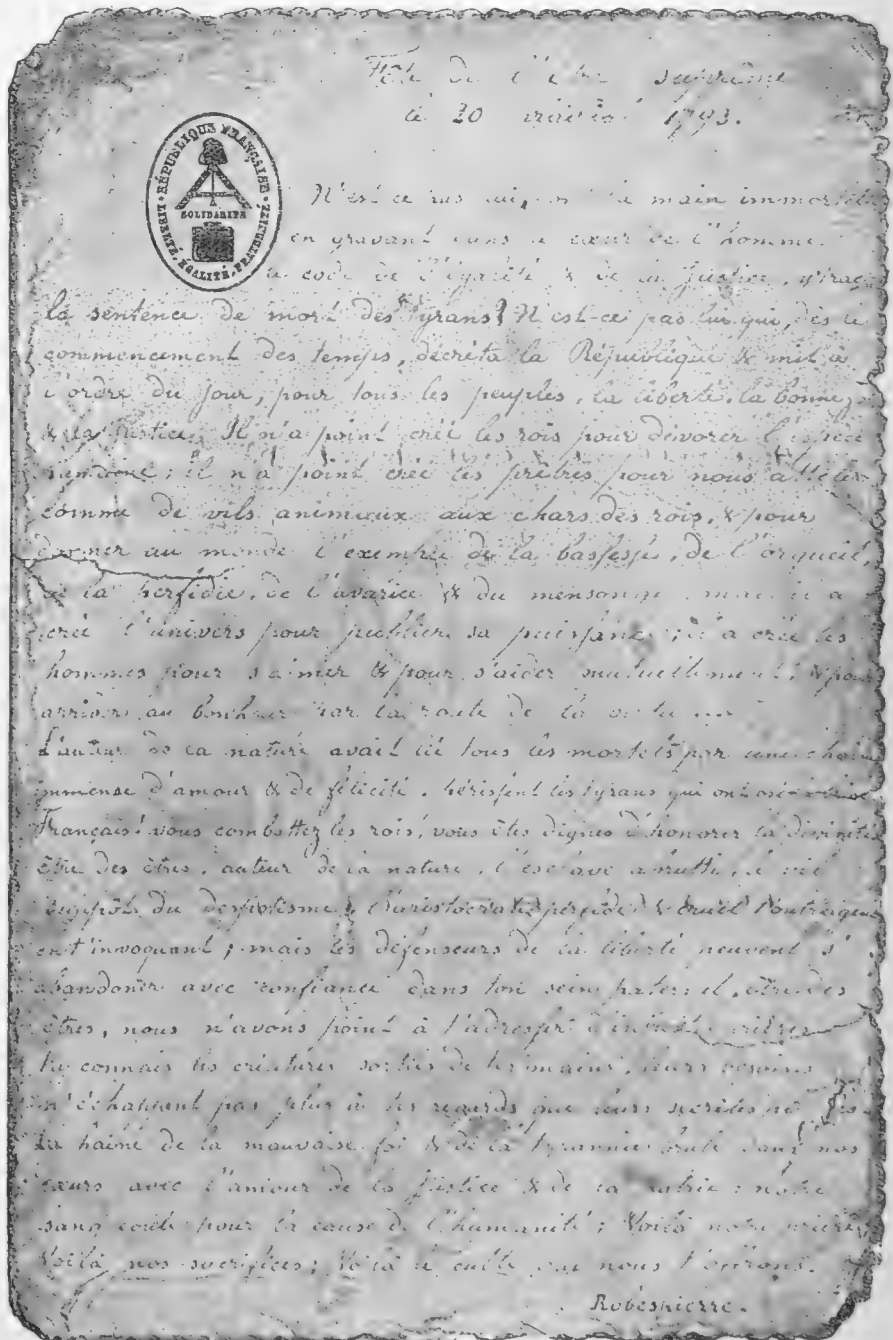 Fête de l'être suprême
le 20 prairial 1793.
RÉPUBLIQUE FRANÇAISE
LIBERTÉ, ÉGALITÉ, FRATERNITÉ
SOLIDARITÉ
N'est ce pas lui, la main immortelle
en gravant dans le cœur de l'homme
le code de l'égalité & de la Justice, y traça
la sentence de mort des Tyrans? N'est-ce pas lui qui, dès le
commencement des temps, décréta la République & mit à
l'ordre du jour, pour tous les peuples, la liberté, la bonne
& la Justice. Il n'a point créé les rois pour dévorer l'espèce
humaine; il n'a point créé les prêtres pour nous atteler
comme de vils animaux aux chars des rois, & pour
donner au monde l'exemple de la bassesse, de l'orgueil,
de la perfidie, de l'avarice & du mensonge, mais il a
créé l'univers pour publier sa puissance; il a créé les
hommes pour s'aimer & pour s'aider mutuellement, & pour
arriver au bonheur par la route de la vertu
L'auteur de la nature avait lié tous les mortels par une chaine
immense d'amour & de félicité. périssent les tyrans qui ont osé
Français! vous combattez les rois, vous êtes dignes d'honorer la divinité
être des êtres, auteur de la nature, l'esclave abruti, le vil
suppôt du despotisme, l'aristocrate perfide & cruel t'outragent
en t'invoquant; mais les défenseurs de la liberté peuvent s'
abandoner avec confiance dans ton sein paternel, être des
êtres, nous n'avons point à t'adresser d'injustes prières
tu connais les créatures sorties de tes mains, leurs besoins
n'échappent pas plus à tes regards que leurs secrètes
La haine de la mauvaise foi & de la tyrannie brule dans nos
cœurs avec l'amour de la Justice & de la patrie; notre
sang coule pour la cause de l'humanité; Voilà notre prière,
Voilà nos sacrifices; Voilà le culte que nous t'offrons.
Robespierre.